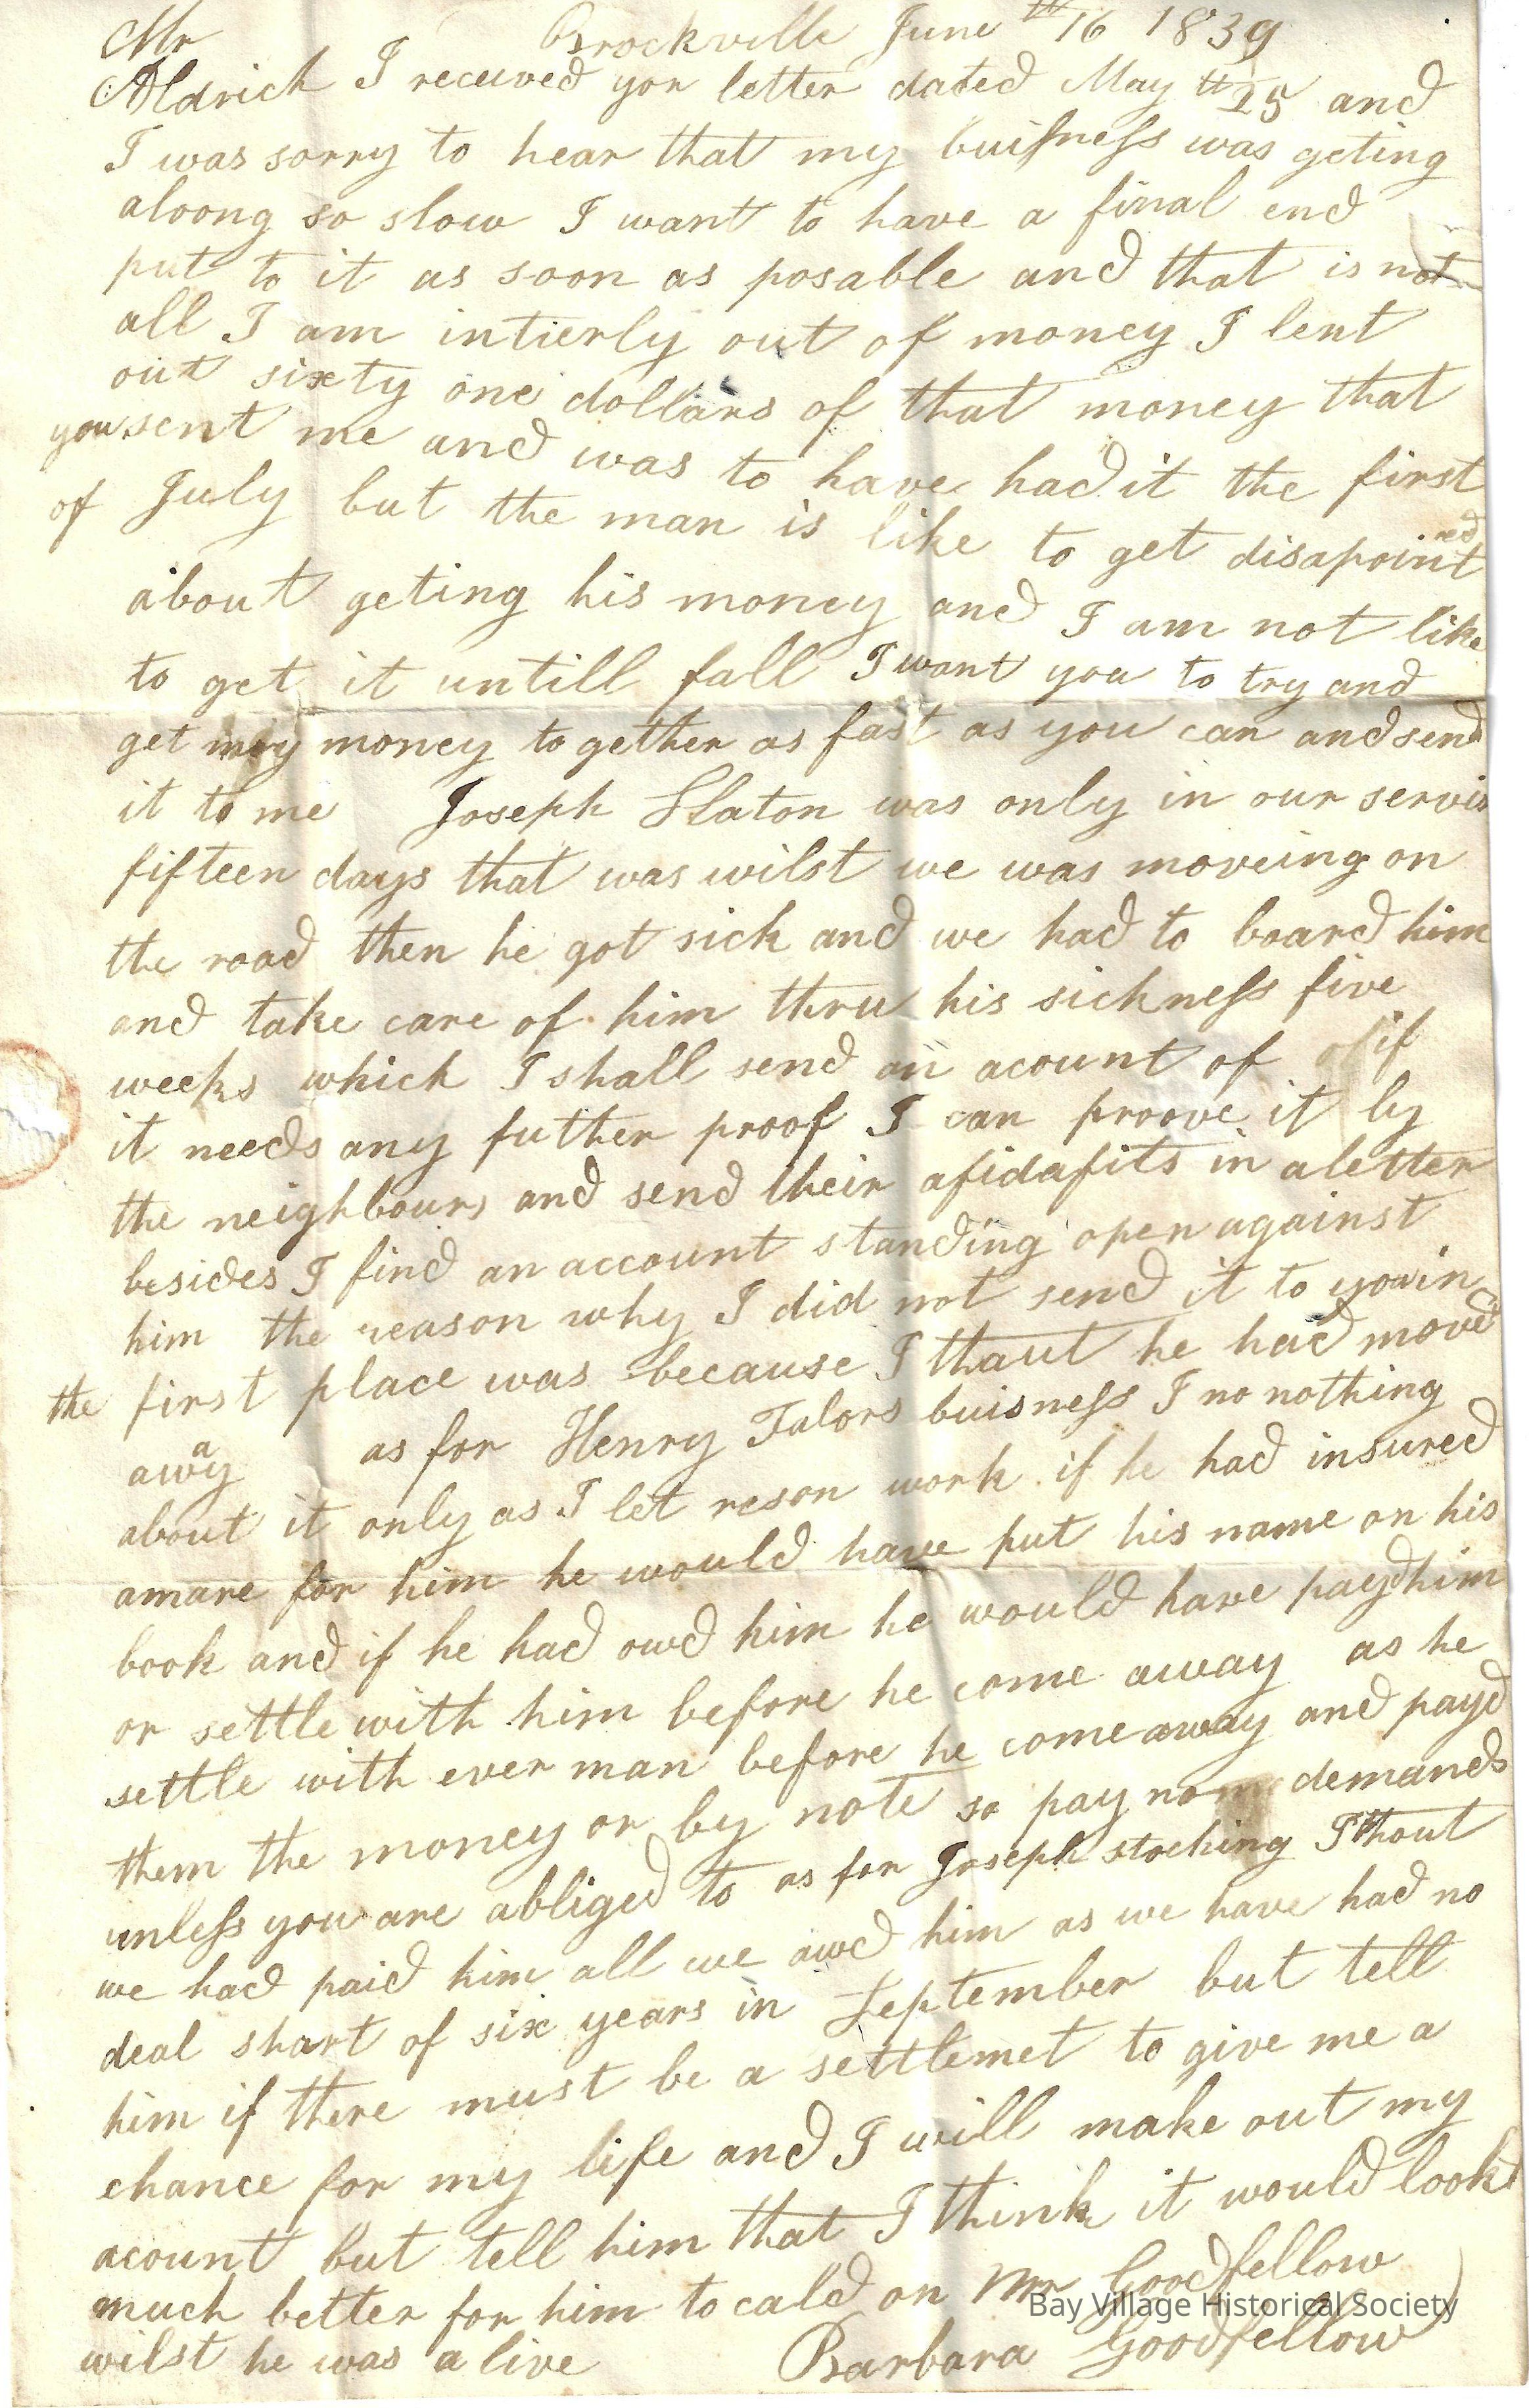 Brockville June th 16 1839
Mr
Aldrich I received yor letter dated May th 25 and
I was sorry to hear that my buisness was geting
aloong so slow I want to have a final end
put to it as soon as posable and that is not
all I am intierly out of money I lent
out sixty one dollars of that money that
you sent me and was to have had it the first
of July but the man is like to get disapointed
about geting his money and I am not like
to get it untill fall I want you to try and
get my money to gether as fast as you can and send
it to me Joseph Slaton was only in our servis
fifteen days that was wilst we was moveing on
the road then he got sick and we had to board him
and take care of him thru his sickness five
weeks which I shall send an acount of if
it needs any futher proof I can proove it by
the neighbours and send their afidafits in a letter
besides I find an account standing open against
him the reason why I did not send it to you in
the first place was because I thaut he had movd
away as for Henry Talors buisness I no nothing
about it only as I let reson work if he had insured
a mare for him he would have put his name on his
book and if he had owd him he would have payd him
or settle with him before he come away as he
settle with ever man before he come away and payd
them the money or by note so pay no demands
unless you are abliged to as for Joseph stocking I thout
we had paid him all we awd him as we have had no
deal short of six years in September but tell
him if there must be a settlemet to give me a
chance for my life and I will make out my
acount but tell him that I think it would lookd
much better for him to cald on Mr Goodfellow
wilst he was a live Barbara Goodfellow
Bay Village Historical Society